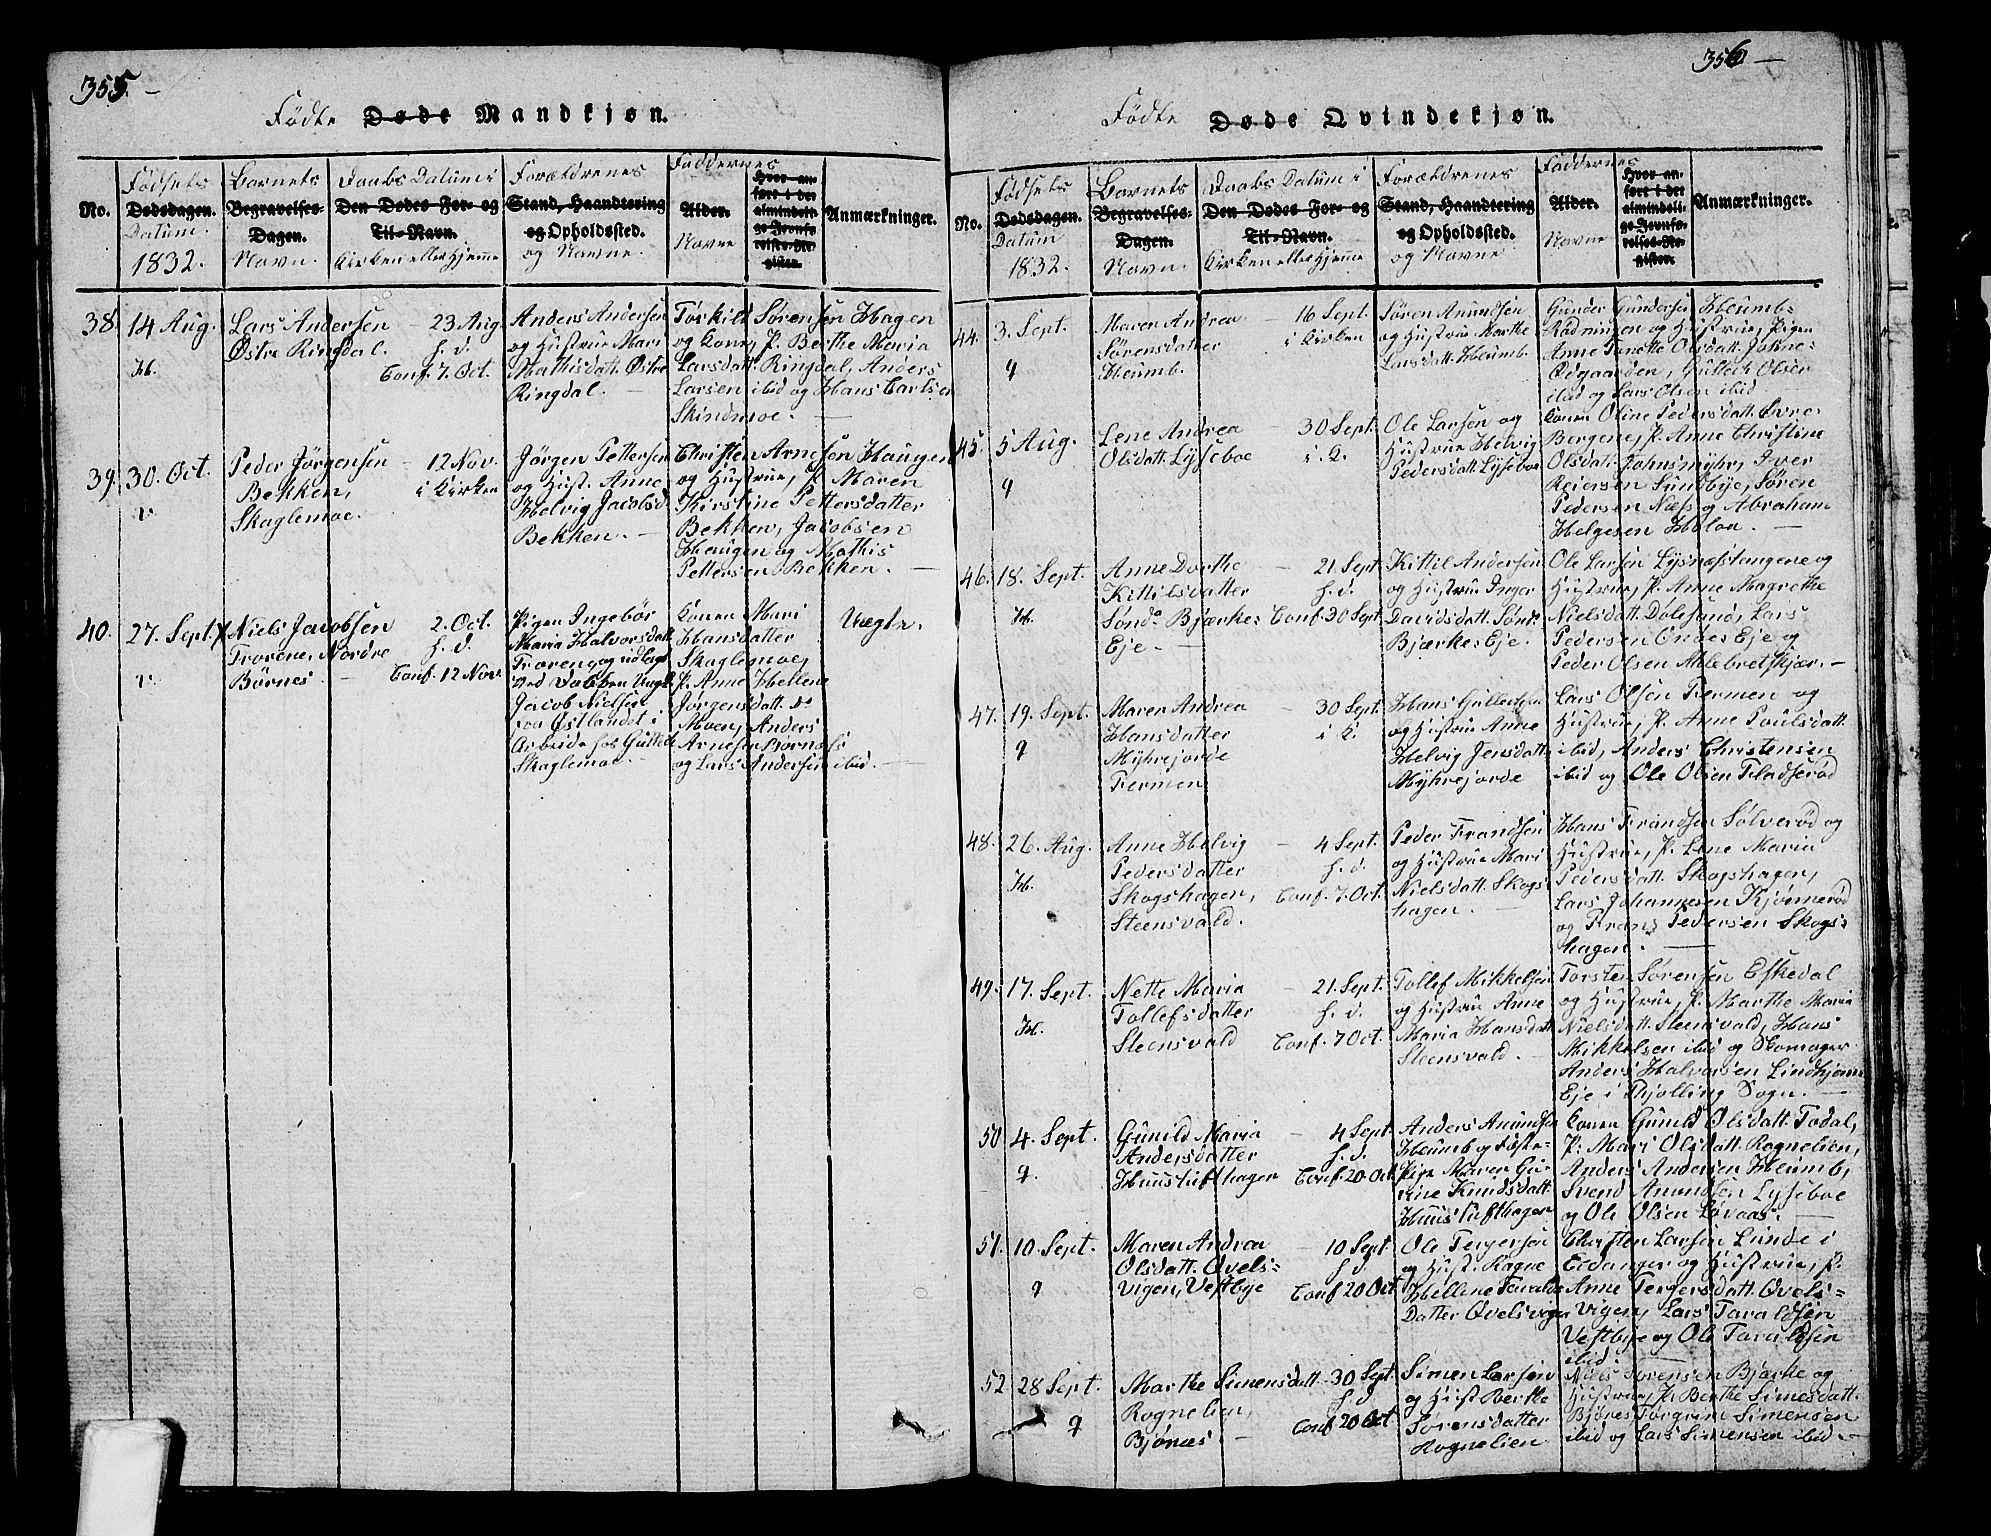 355. —
Fødte Døde Mandkjøn.
No.
Fødsels Dødsdagen. Datum. 1832.
Barnets Begravelses-Dagen. Navn.
Daabs Datum i Den Dødes For- og Til-Navn. Kirken eller Hjemme
Forældrenes Stand, Haandtering og Opholdssted. og Navne
Faddernes Alder. Navne
Hvor anført i det almindelige Jevnførelses-Register.
Anmærkninger.
38. 14 Aug. H.
Lars Andersen
Østre Ringdal.
23 Aug.
h. d.
Conf. 7. Oct.
Anders Andersen
og Hustrue Mari
Mathisdat. Østre
Ringdal. —
Torkild Sørensen Hagen
og Kone, P. Berthe Maria
Larsdatt. Ringdal, Anders
Larsen ibid og Hans Carlsen
Skindmoe. —
39. 30. Oct. v
Peder Jörgensen
Bekken,
Skaglemoe.
12 Nov.
i Kirken
Jörgen Pettersen
og Hust. Anne
Helvig Jacobsd.
Bekken. —
Christen Arnesen Haugen
og Hustrue, P. Maren
Kirstine Pettersdatter
Bekken, Jacobsen
Haugen og Mathis
Pettersen Bekken. —
40. 27. Sept. v.
Niels Jacobsen
Trorene, Nordre
Börnes —
2. Oct.
h. d.
Conf. 12 Nov.
Pigen Ingebör
Maria Halvorsdatt.
Troreneg og udlagt
Jacob Nielsen
fra Østlandet i
Arbeide hos Gulle
Skaglemoe. —
Konen Mari
Hansdatter
Skaglemoe,
P. Anne Hellene
Jörgensdatt. Do
Moen, Anders
Arnesen Börnes
og Lars Andersen ibid. —
Uægte.
356 —
Fødte Døde Qvindekjøn.
No.
Fødsels Dødsdagen. Datum 1832.
Barnets Begravelses-Dagen. Navn.
Daabs Datum i Den Dødes For- og Til-Navn. Kirken eller Hjemme
Forældrenes Stand, Haandtering og Opholdssted. og Navne
Faddernes Alder. Navne
Hvor anført i det almindelige Jevnførelses-Register.
Anmærkninger.
44. 3. Sept. q
Maren Andrea
Sörensdatter
Heumb.
16 Sept.
i Kirken
Sören Amundsen
og Hustrue Marthe
Larsdatt. Heumb.
Gunder Gundersen Heumb-
Radningen og Hustrue, Pigen
Anne Tonette Olsdatt. Jokne-
Ødgaarden, Gulleck Olsen
ibid og Lars Olsen ibid.
45. 5 Aug. q
Lene Andrea
Olsdatt. Lyseboe
30 Sept.
i. K.
Ole Larsen og
Hustrue Helvig
Pedersdatt. Lyseboe
Konen Oline Pedersdatt. Övre-
Bergene, P. Anne Christine
Olsdatt. Johnsmyhr, Iver
Reiersen Sundbye, Sören
Pedersen Næss og Abraham
Helgesen Holoa. —
46. 18. Sept. H.
Anne Dorthe
Kittilsdatter
Sönd. Bjærke-
Eje. —
21 Sept.
h. d.
Conf. 30 Sept.
Kittil Andersen
og Hustrue Inger
Davidsdatt. Sönd.
Bjærke Eje.
Ole Larsen Lysnæstangene og
Hustrue, P. Anne Magrethe
Nielsdatt. Dolesund, Lars
Pedersen Ondes Eje og
Peder Olsen Ablebretskjær. —
47. 19. Sept. q
Maren Andrea
Hansdatter
Myhrejorde
Fermen
30 Sept.
i K.
Hans Gullecksen
og Hustrue Anne
Helvig Jensdatt.
Myhrejorde
Lars Olsen Fermen og
Hustrue, P. Anne Poulsdatt.
ibid, Anders Christensen
ibid og Ole Olsen Fladseröd
48. 26. Aug. H.
Anne Helvig
Pedersdatter
Skogshagen,
Steensvald.
4 Sept.
h. d.
Conf. 7. Oct.
Peder Frandsen
og Hustrue Mari
Nielsdatt. Skogs-
hagen. —
Hans Frandsen Sölveröd og
Hustrue, P. Lene Maria
Pedersdatt. Skogshagen,
Lars Johannesen Kjönneröd
og Frans Pedersen Skogs-
hagen. —
49. 17. Sept. H.
Nette Maria
Tollefsdatter
Steensvald
21. Sept.
h. d.
Conf. 7 Oct.
Tollef Mikkelsen
og Hustrue Anne
Maria Hansdatt.
Steensvald. —
Torsten Sörensen Eskedal
og Hustrue, P. Marthe Maria
Nielsdatt. Steensvald, Hans
Mikkelsen ibid og Skomager
Anders Halvorsen Lindhjem-
Eje i Thjölling Sogn. —
50 4. Sept. q.
Gunild Maria
Andersdatter
Huustufthagen
4 Sept.
h. d.
Conf. 20 Oct.
Anders Amundsen
Heumb og Föste-
Pige Maren Gu-
rine Knudsdatt.
Huustufthagen
Konen Gunild Olsdatt. Todal,
P. Mari Olsdatt. Rognelien,
Anders Andersen Heumb,
Svend Amundsen Lyseboe
og Ole Olsen Lövaas. —
51. 10. Sept. q
Maren Andrea
Olsdatt. Qvels-
vigen, Vestbye
10 Sept.
h. d.
Conf 20 Oct.
Ole Tergersen
og Hust. Ragne
Hellene Taralds
Datter Qvelsvigen
Christen Larsen Lunde i
Eidanger og Hustrue, P.
Anne Tergersdatt. Qvels-
Vigen, Lars Taraldsen
Vestbye og Ole Taraldsen
ibid. —
52 28 Sept. q
Marthe Simensdatt.
Rognelien,
Bjönæs. —
30 Sept.
h d
Conf 20 Oct.
Simen Larsen
og Hust Berthe
Sörensdatter
Rognelien.
Niels Sörensen Bjørke og
Hustrue, P. Berthe Simesdatt.
Bjönes, Torgrim Simensen
ibid og Lars Simensen ibid. —